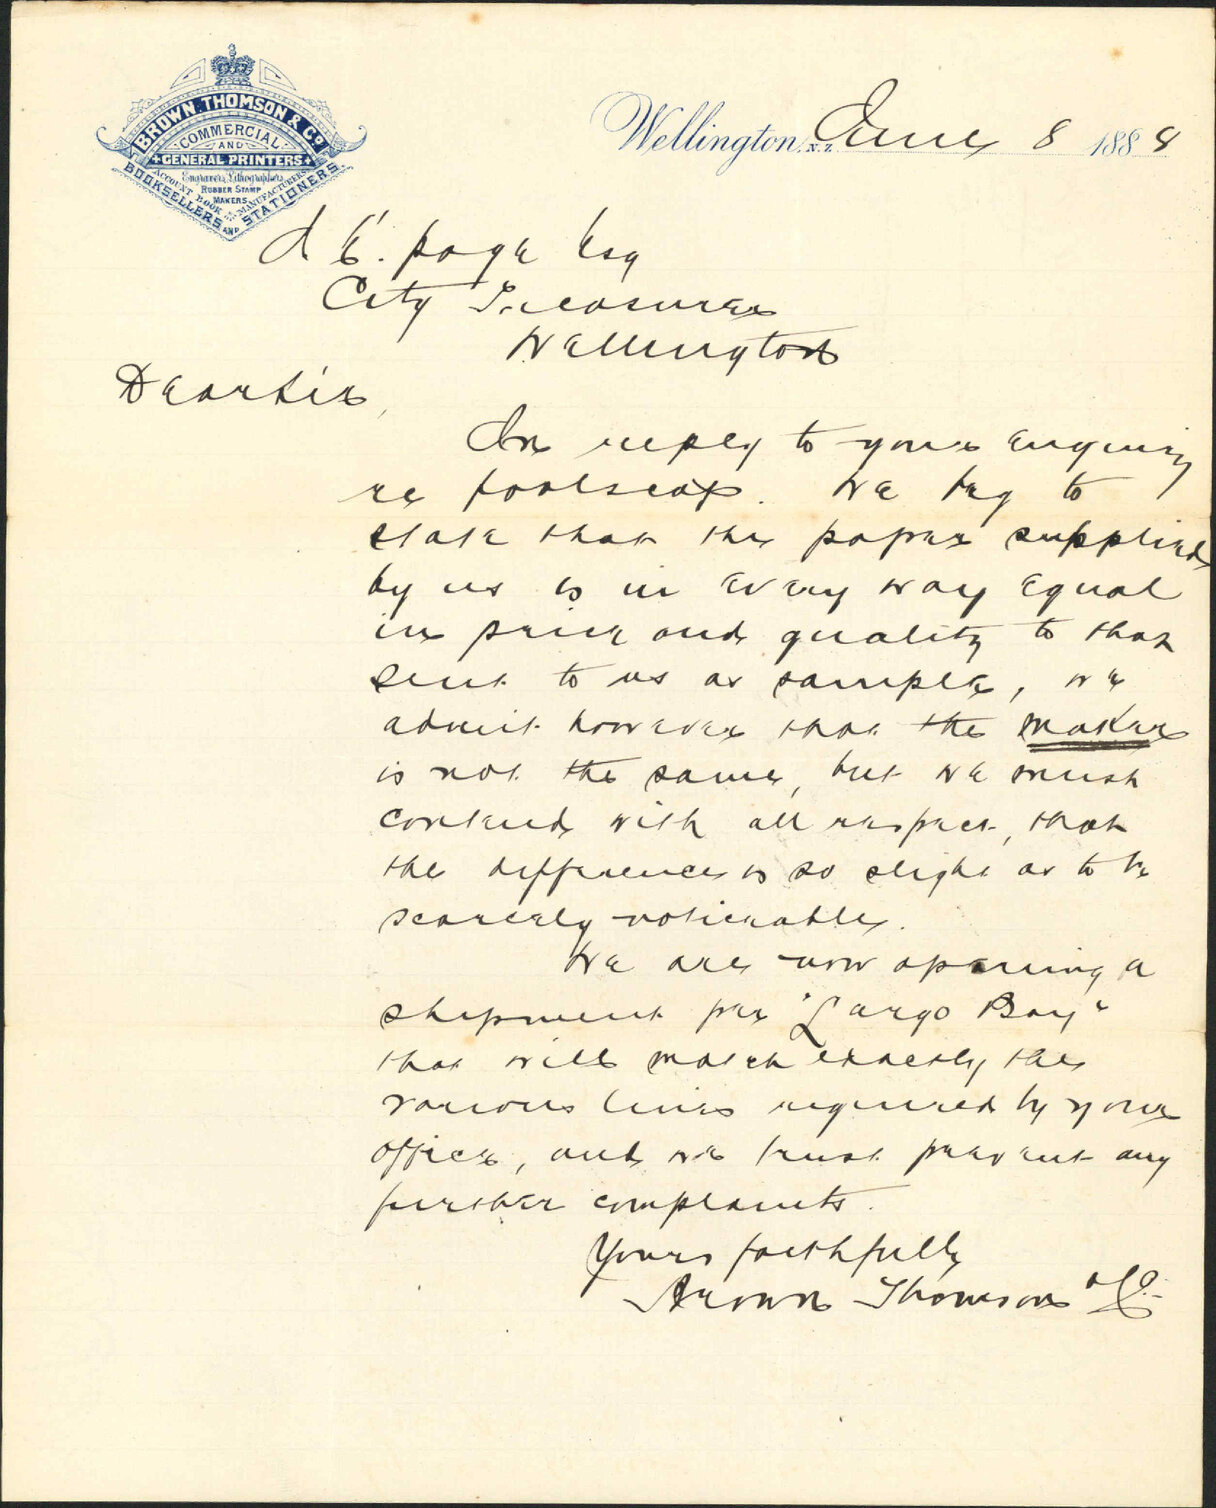 BROWN. THOMSON & Co.
COMMERCIAL
AND
GENERAL PRINTERS
Engravers, Lithographers,
RUBBER STAMP
MAKERS
ACCOUNT BOOK MANUFACTURERS
BOOKSELLERS AND STATIONERS.
Wellington, N.Z. June 8 1888
J E. page Esq
City Treasurer
Wellington
Dear Sir,
In reply to your enquiry
re foolscap. We beg to
state that the paper supplied
by us is in every way equal
in price and quality to that
sent to us as sample, we
admit however that the maker
is not the same, but we must
contend with all respect, that
the difference is so slight as to be
scarcely noticeable.
We are now opening a
shipment per "Largo Bay"
that will match exactly the
various lines required by your
office, and we trust prevent any
further complaints.
Yours faithfully
Brown Thomson & Co.